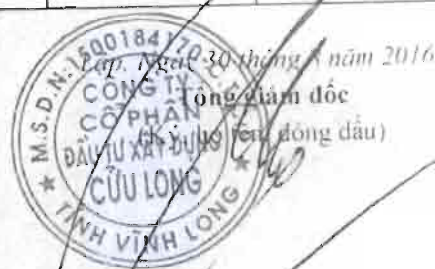 Lập, Ngày 30 tháng năm 2016
Tổng giám đốc
(Ký, họ tên, đóng dấu)
M.S.D.N:1500184170-C.T.C.P
CÔNG TY
CỔ PHẦN
ĐẦU TƯ XÂY DỰNG
CỬU LONG
TỈNH VĨNH LONG